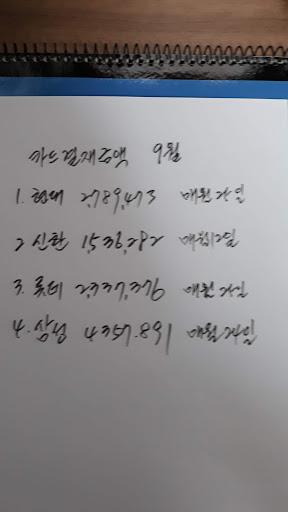 카드결재금액 9월
1. 현대 2,789,473 매월 24일
2 신한 1,536,282 매월12일
3. 롯데 2,337,376 매월 24일
4. 삼성 4357.891 매월 24일